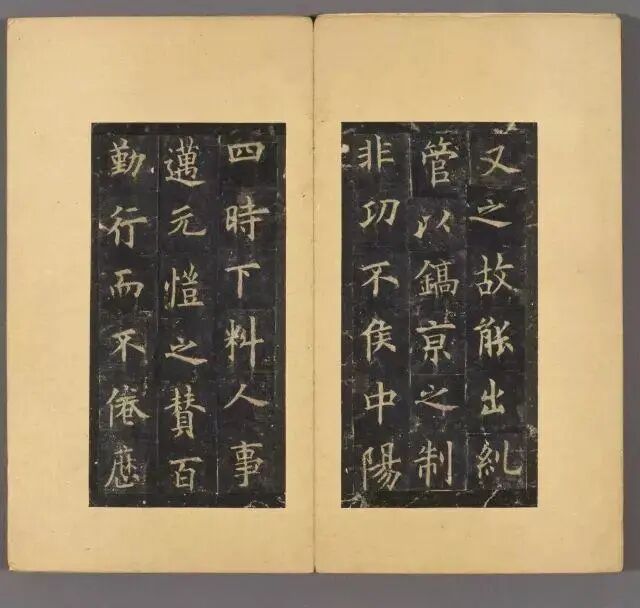 又之故能出糺
管以鎬京之制
非功不侯中陽
四時下料人事
邁元愷之贊百
勤行而不倦應